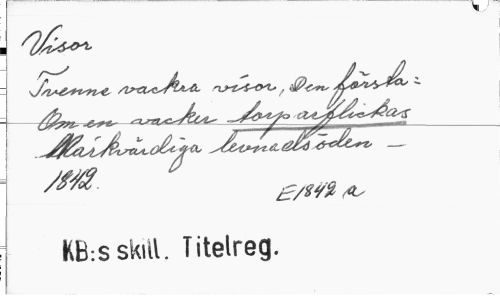 Visor
Tvenne vackra visor, Den första:
Om en vacker torparflickas
Märkvärdiga levnadsöden —
1842.
E1842 a
KB:s skill. Titelreg.